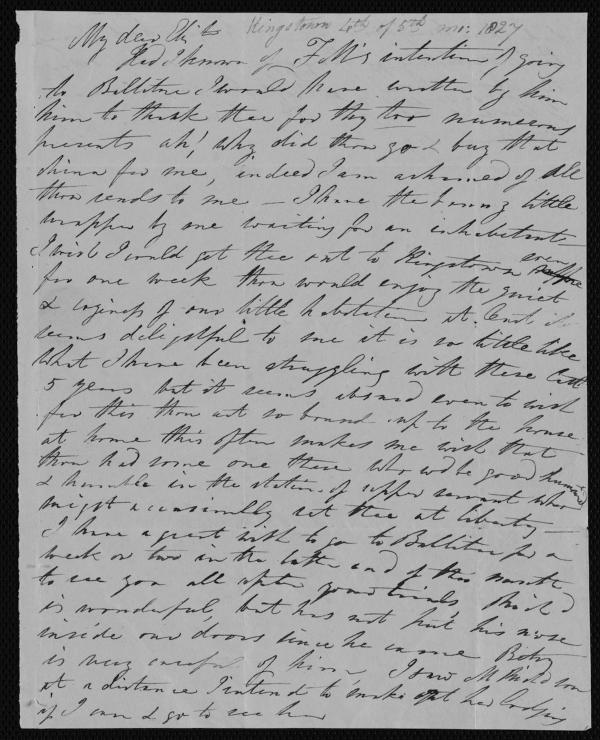 Kingstown 4th of 5th mo: 1827
My dear Eliz th
Had I known of F M's intention of going
to Ballitore I would have written by him
him to thank thee for thy too numerous
presents ah! why did thou go & buy that
china for me, indeed I am ashamed of all
thou sends to me — I have the bonny little
wrapper by me waiting for an inhabitant
I wish I could get thee out to Kingstown even
for one week thou would enjoy the quiet
& coziness of our little habitation it
seems delightful to me it is so little like
what I have been struggling with these last
5 years but it seems absurd even to wish
for this thou art so bound up to the house
at home this often makes me wish that
thou had some one there who wd be good humored
& humble in the station of upper servant who
might occasionally set thee at liberty —
I have a great wish to go to Ballitore for a
week or two in the latter end of this month
to see you all after your trials
is wonderful, but has not put his nose
inside our doors since he came Betsy
is very careful of him, I saw M
at a distance I intend to make out her lodging
if I can & go to see her